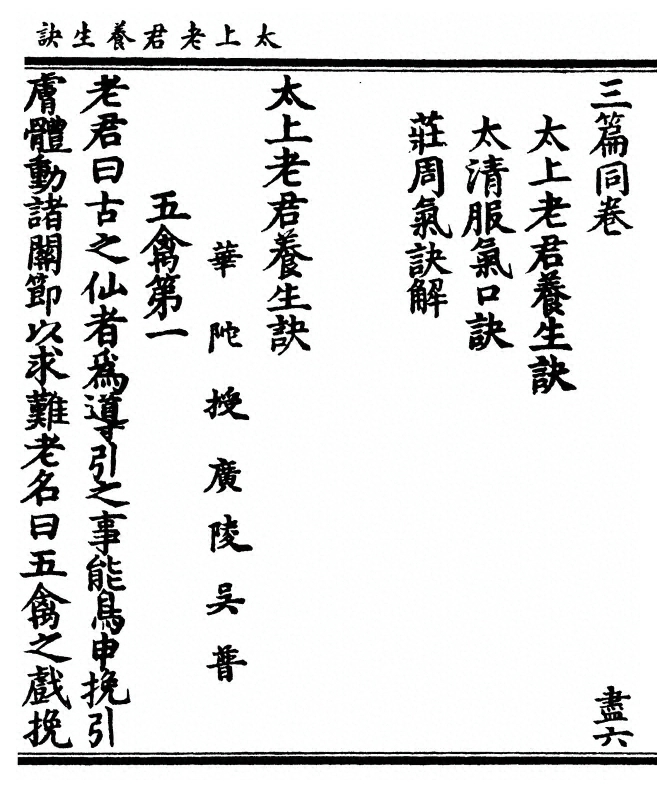 太上老君養生訣
三篇同卷　盡六
太上老君養生訣
太清服氣口訣
莊周氣訣解
太上老君養生訣
華陁授廣陵吳普
五禽第一
老君曰古之仙者爲導引之事能鳥申挽引
膚體動諸關節以求難老名曰五禽之戲挽